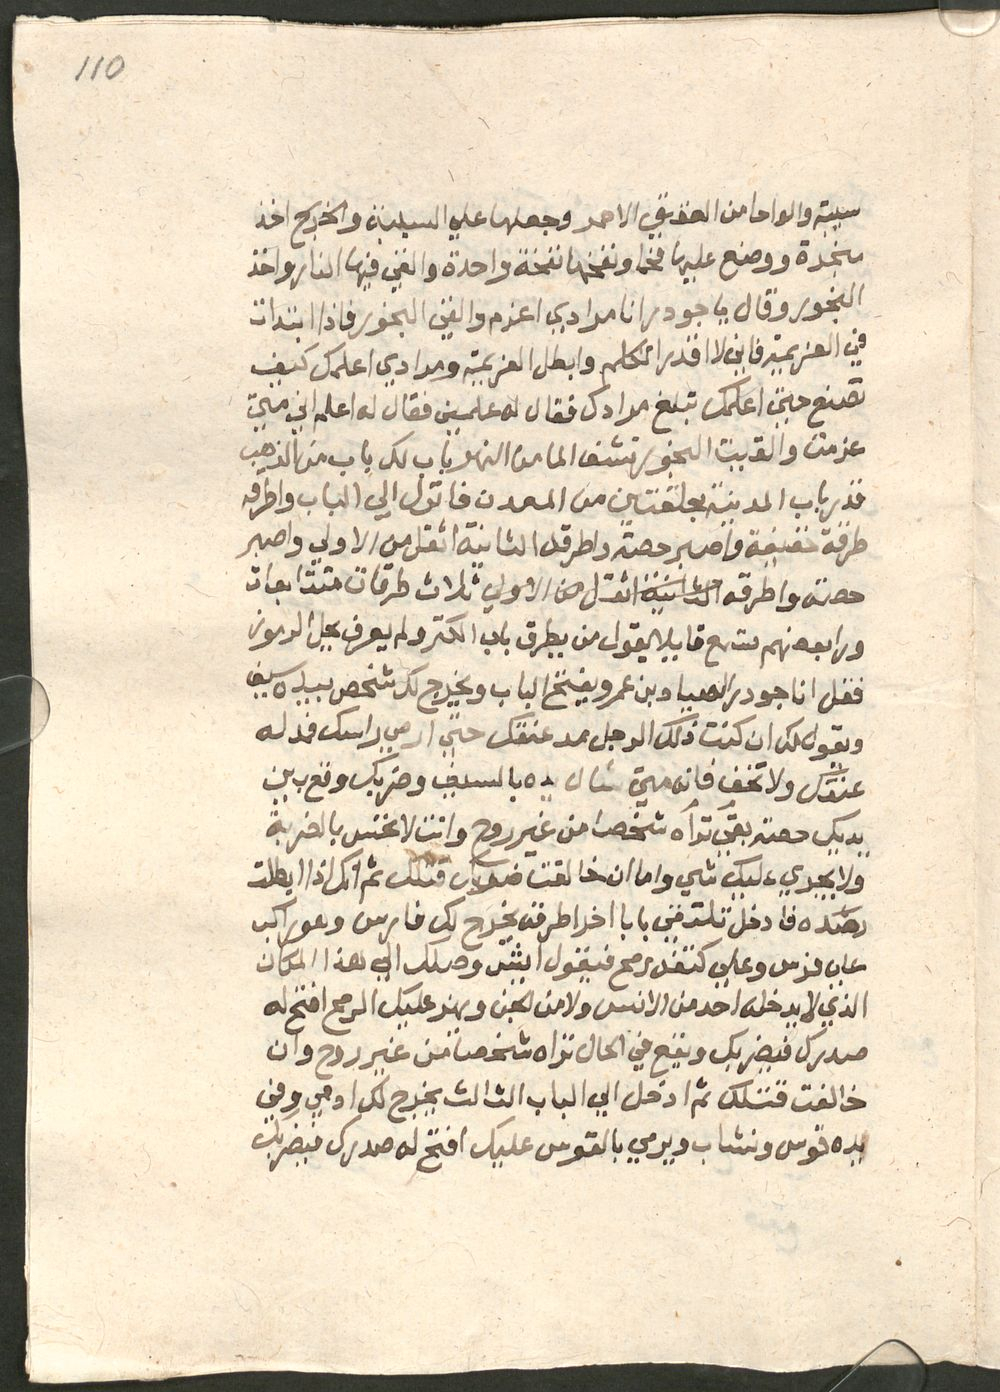 110
سيبة والواحا من العقيق الاحمر وجعلها علي السيبة واخرج اخذ
منجرة ووضع عليها فحما ونفخها نفخة واحدة والقي فيها النار واخذ
البخور وقال يا جودر انا مرادي اعزم والقي البخور فاذا ابتدات
في العزيمة فاني لا اقدر اتكلم وابطل العزيمة ومرادي اعلمك كيف
تصنع حتي اعلمك تبلغ مرادك فقال له علمني فقال له اعلم اني متي
عزمت والقيت البخور نشف الما من النهر وباب لك باب من الذهب
قدر باب المدينة بحلقتين من المعدن فانزل الي الباب واطرقه
طرقة خفيفة واصبر حصة واطرق الثانية اثقل من الاولي واصبر
حصة واطرقه الثانية اثقل من الاولي ثلاث طرقات متتابعات
ورابعهم تسمع قايلا يقول من يطرق باب الكنز ولم يعرف يحل الرموز
فقل انا جودر الصياد بن عمر ويفتح الباب ويخرج لك شخص بيده سيف
ويقول لك ان كنت ذلك الرجل مد عنقك حتي ارمي راسك فمد له
عنقك ولا تخف فانه متي شال يده بالسيف وضربك وقع بين
يديك حصة بقي تراه شخصا من غير روح وانت لا تختس بالضربة
ولا يجري عليك شي واما ان خالفت ضربك قتلك ثم انك اذا ابطلت
رصده فادخل تلتقي بابا اخر اطرقه يخرج لك فارس وهو راكب
علي فرس وعلي كتفه رمح فيقول ايش وصلك الي هذا المكان
الذي لا يدخله احد من الانس ولا من الجن ويهز عليك الرمح افتح له
صدرك فيضربك ويقع في الحال تراه شخصا من غير روح وان
خالفت قتلك ثم ادخل الي الباب الثالث يخرج لك ادمي وفي
يده قوس ونشاب ويرمي بالقوس عليك افتح له صدرك فيضربك